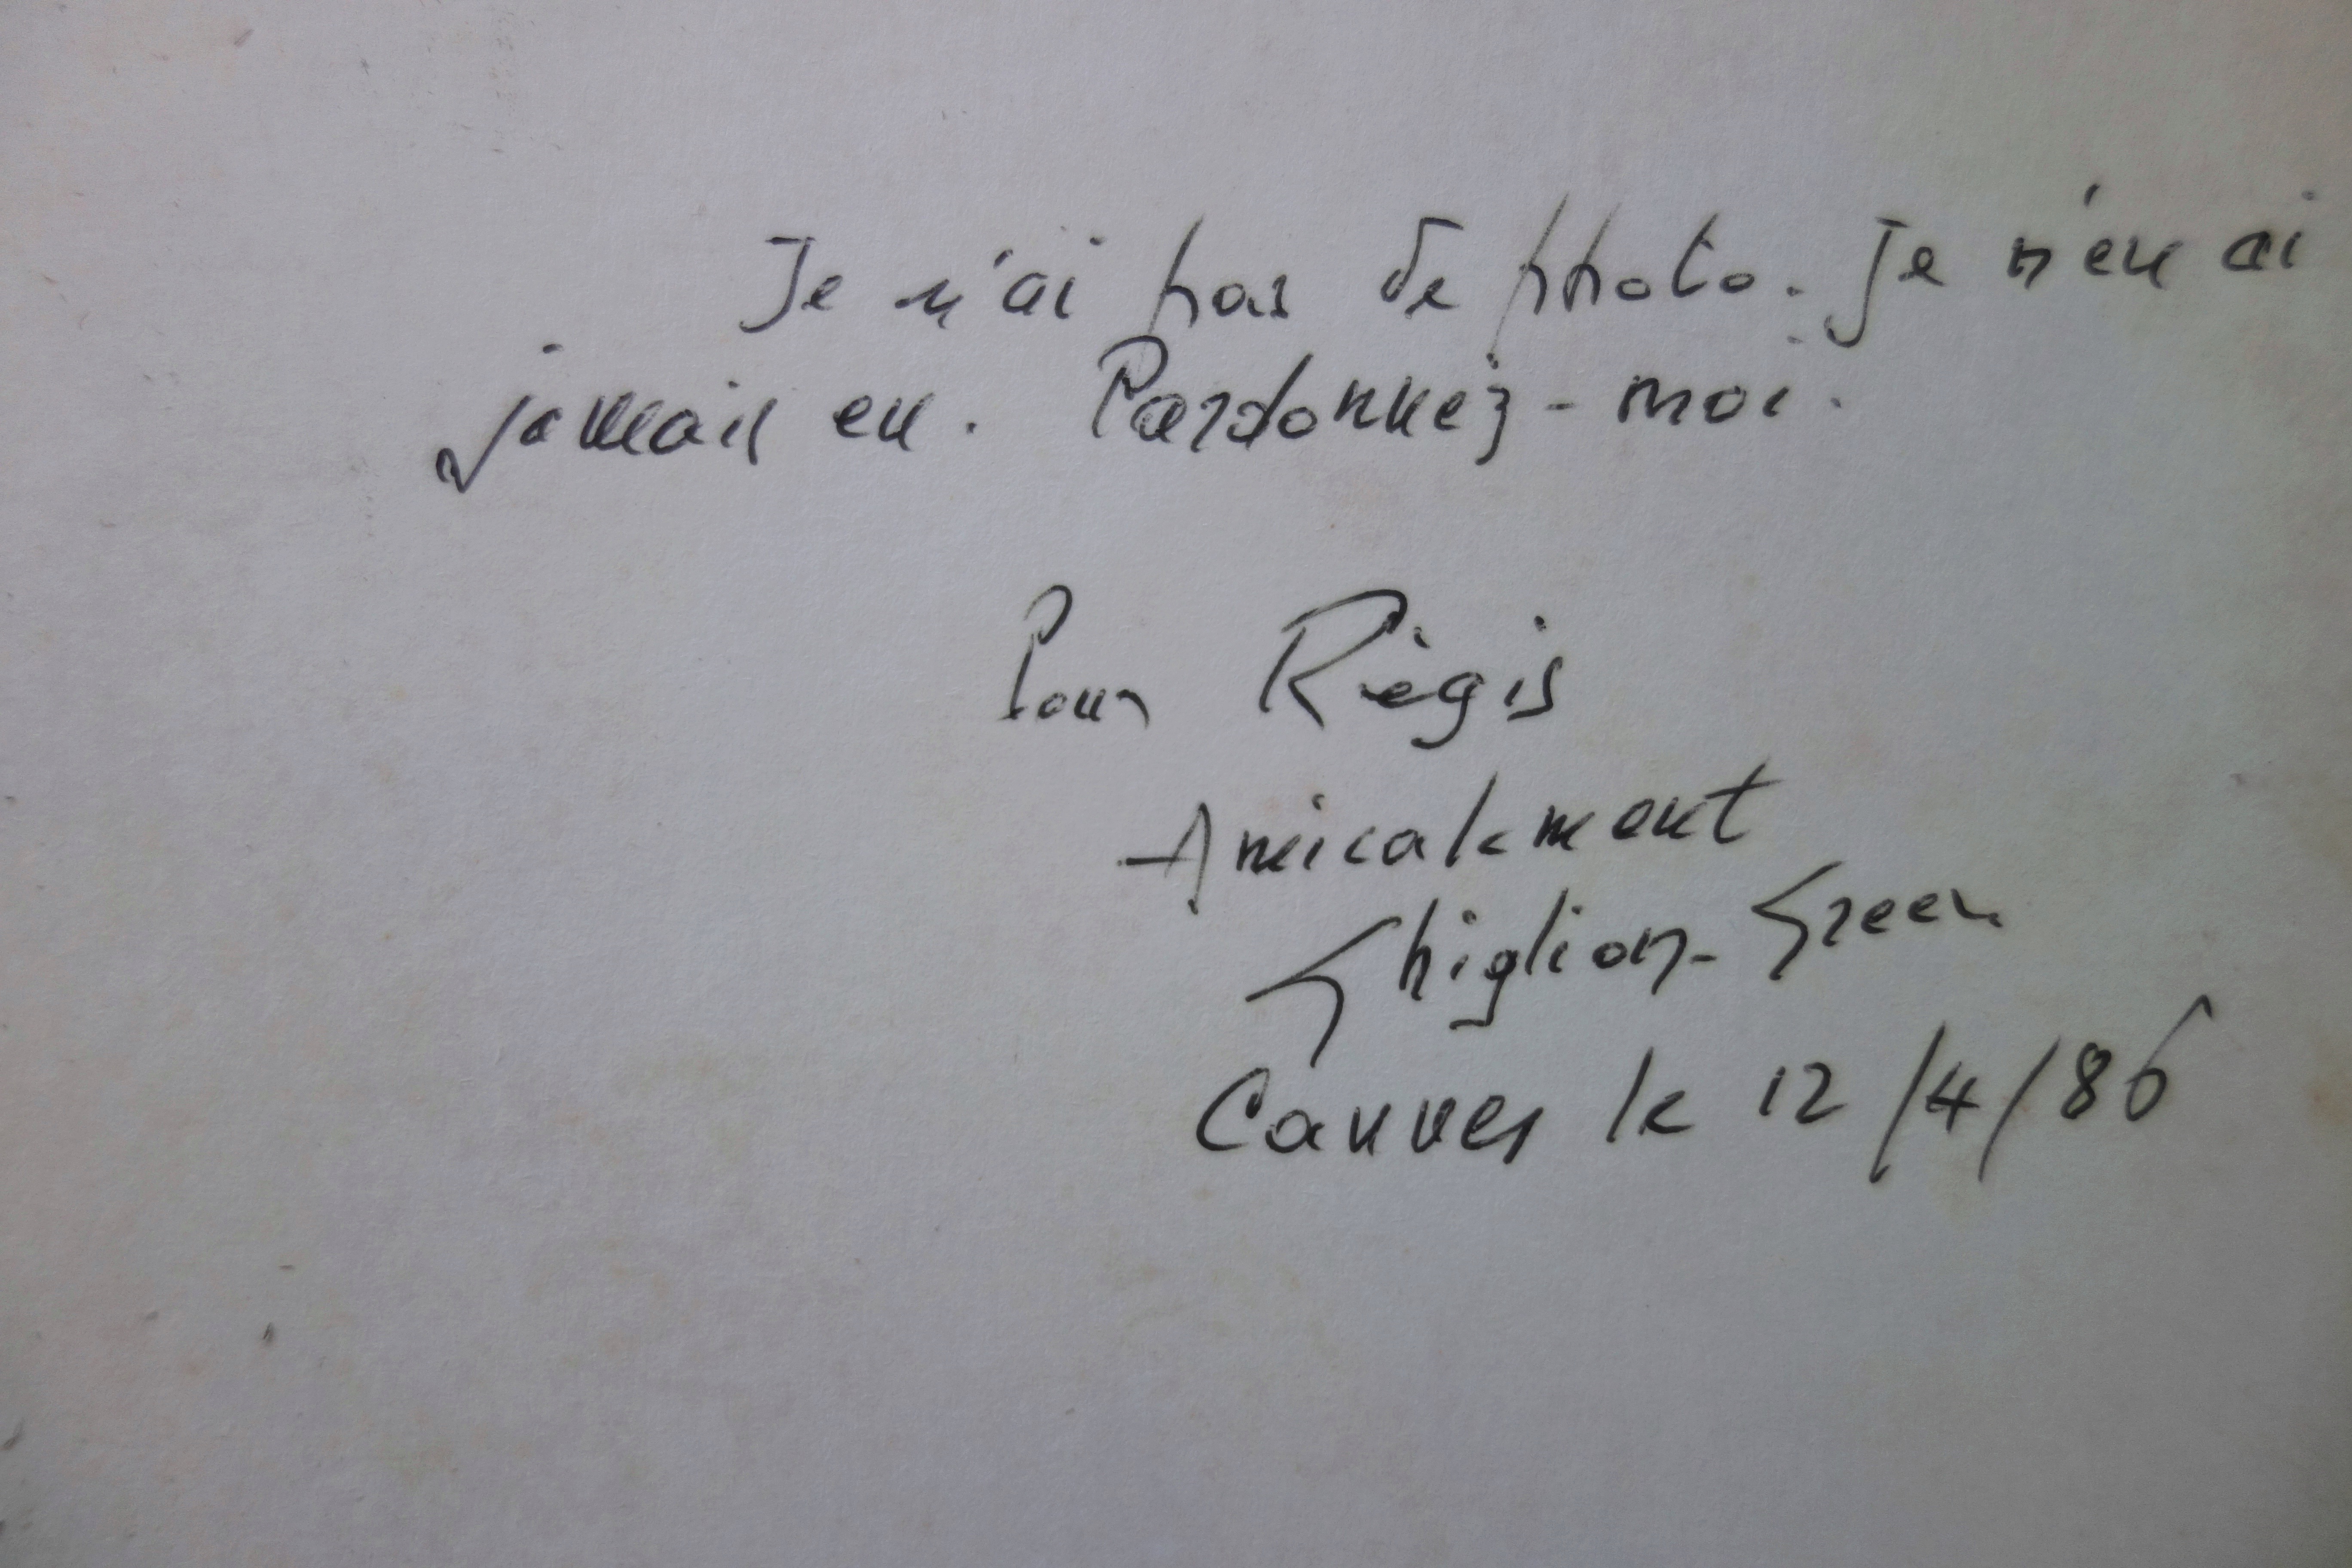 Je n'ai pas de photo. Je n'en ai
jamais eu. Pardonnez-moi.
Pour Règis
Amicalement
Ghiglion-Green
Cannes le 12/4/86